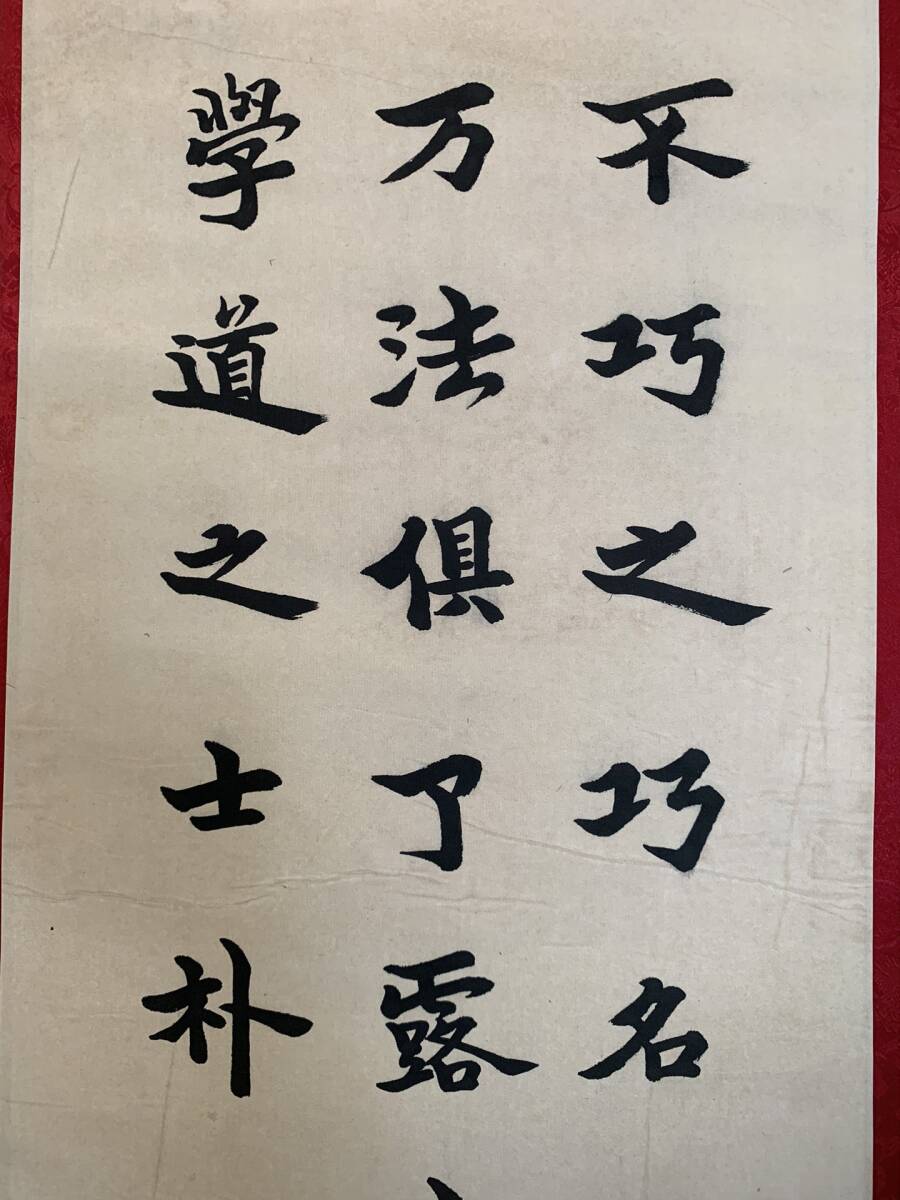 不巧之巧名
万法俱了露
學道之士朴